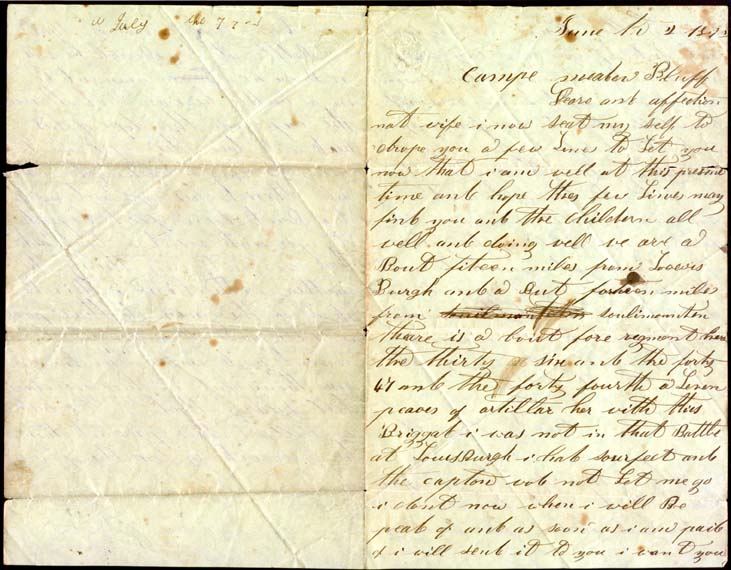 July the 7
June th 2 18
Campe meaber Bluff
Deare ant affection
nat vife i now seat my self to
drope you a few Line to Let you
now that i am vell at this present
time ant hope thes few Lines may
fint you ant the children all
vell ant doing vell ve are a
Bout fiteen miles from Looevis
Burgh ant a But forteen mile
from soulimounten
theare is a bout fore regment her
the thirty six ant the forty
47 ant the forty fourth a Leven
peaces of artillar her vith this
Briggat i was not in that Battle
at Louisburgh i hat sour feet ant
the capton vot not Let me go
i dont now when i will Be
peat of ant as soon as i am pait
of i will sent it to you i cant you